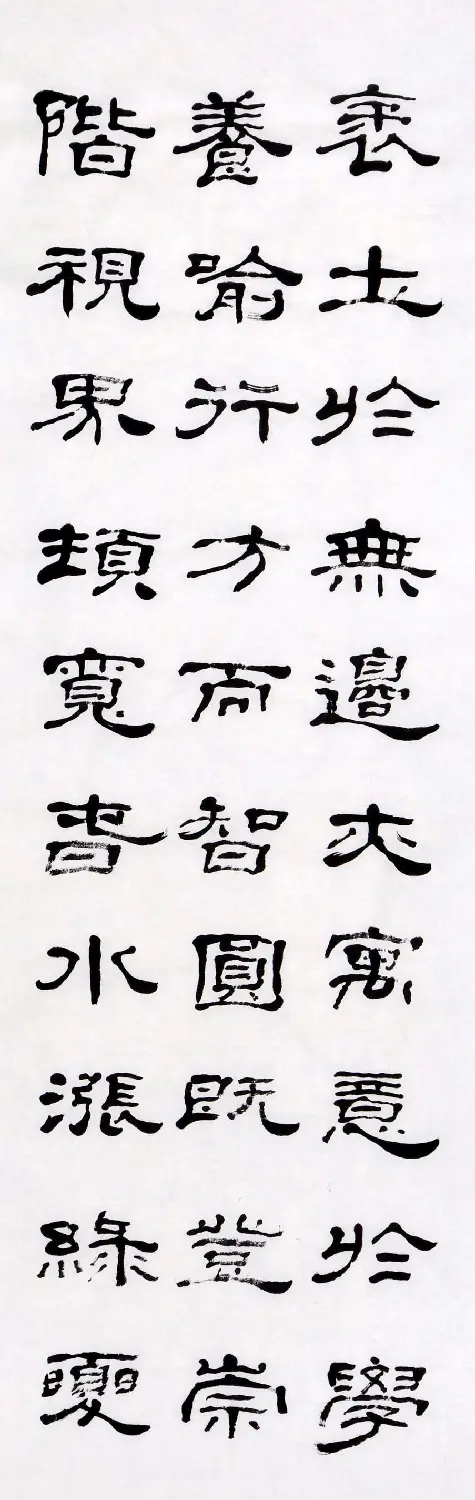 袤土於無邊亦寓意於學
養喻行方而智圓既登崇
階視界頓寬春水漲綠夏